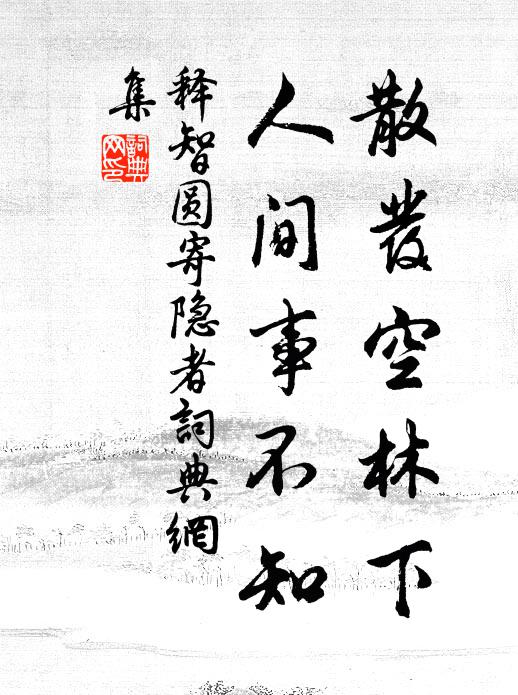 散发空林下
人间事不知
释智圆寄隐者詞典網
集
詞典网印